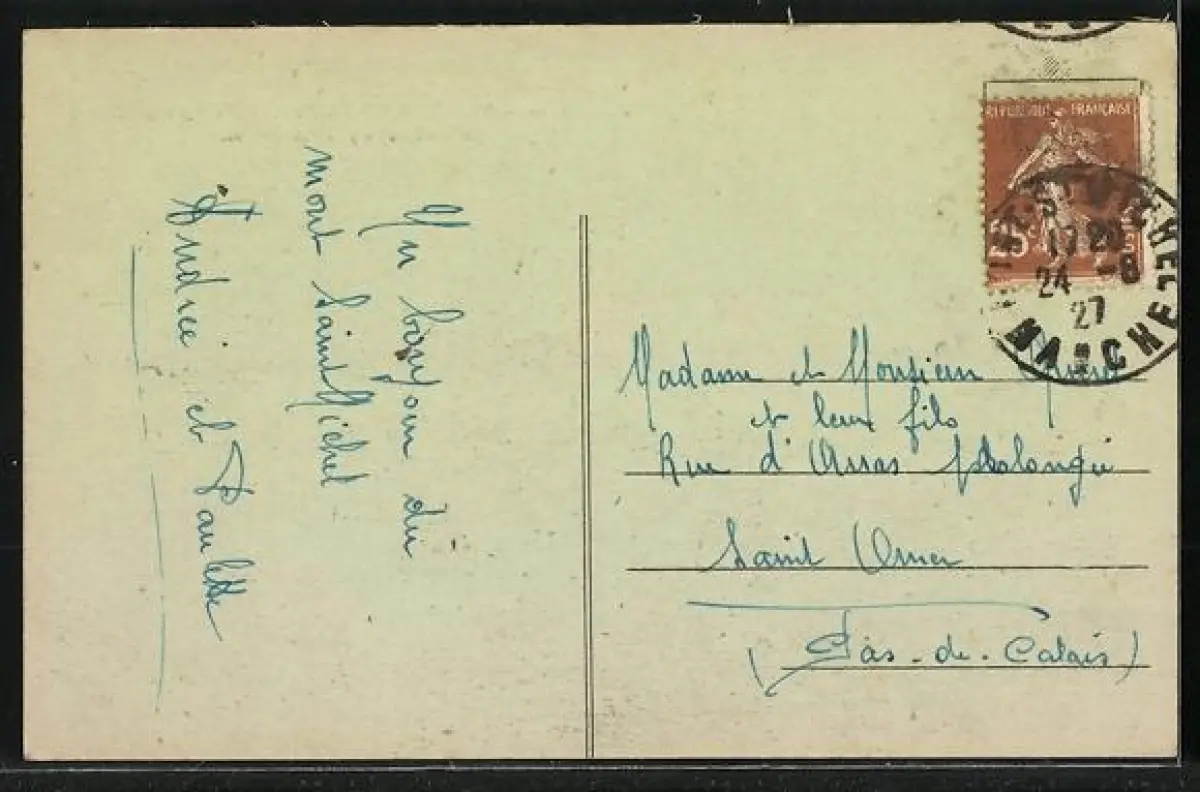 Un bonjour du
mont Saint Michel
Andrée et Paulette
RÉPUBLIQUE FRANÇAISE
25c
MT-ST-MICHEL
17 20
24 -8
27
MANCHE
Madame et Monsieur
et leur fils
Rue d'Arras prolongée
Saint Omer
(Pas-de-Calais)